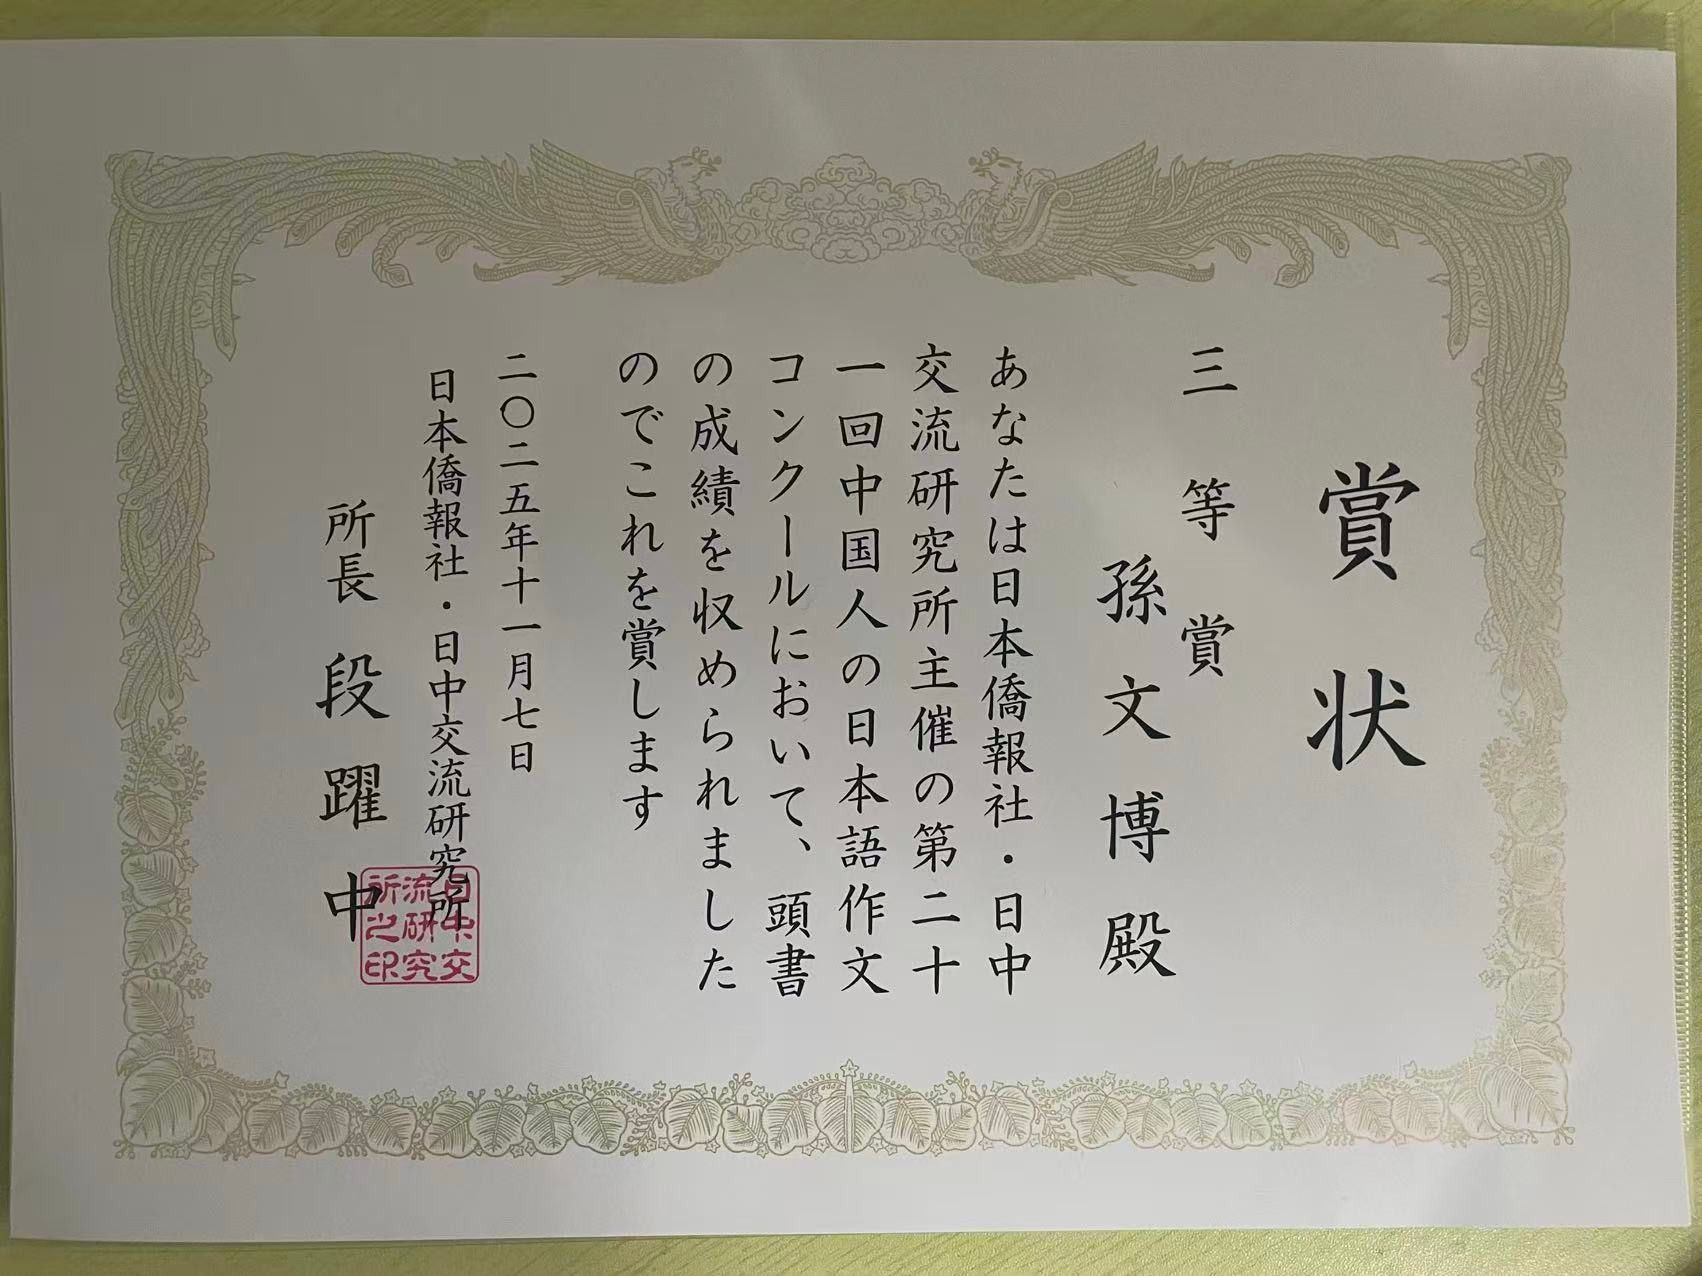 賞状
三等賞
孫文博殿
あなたは日本僑報社・日中
交流研究所主催の第二十
一回中国人の日本語作文
コンクールにおいて、頭書
の成績を収められました
のでこれを賞します
二〇二五年十一月七日
日本僑報社・日中交流研究所
所長 段躍中
日中交
流研究
所之印